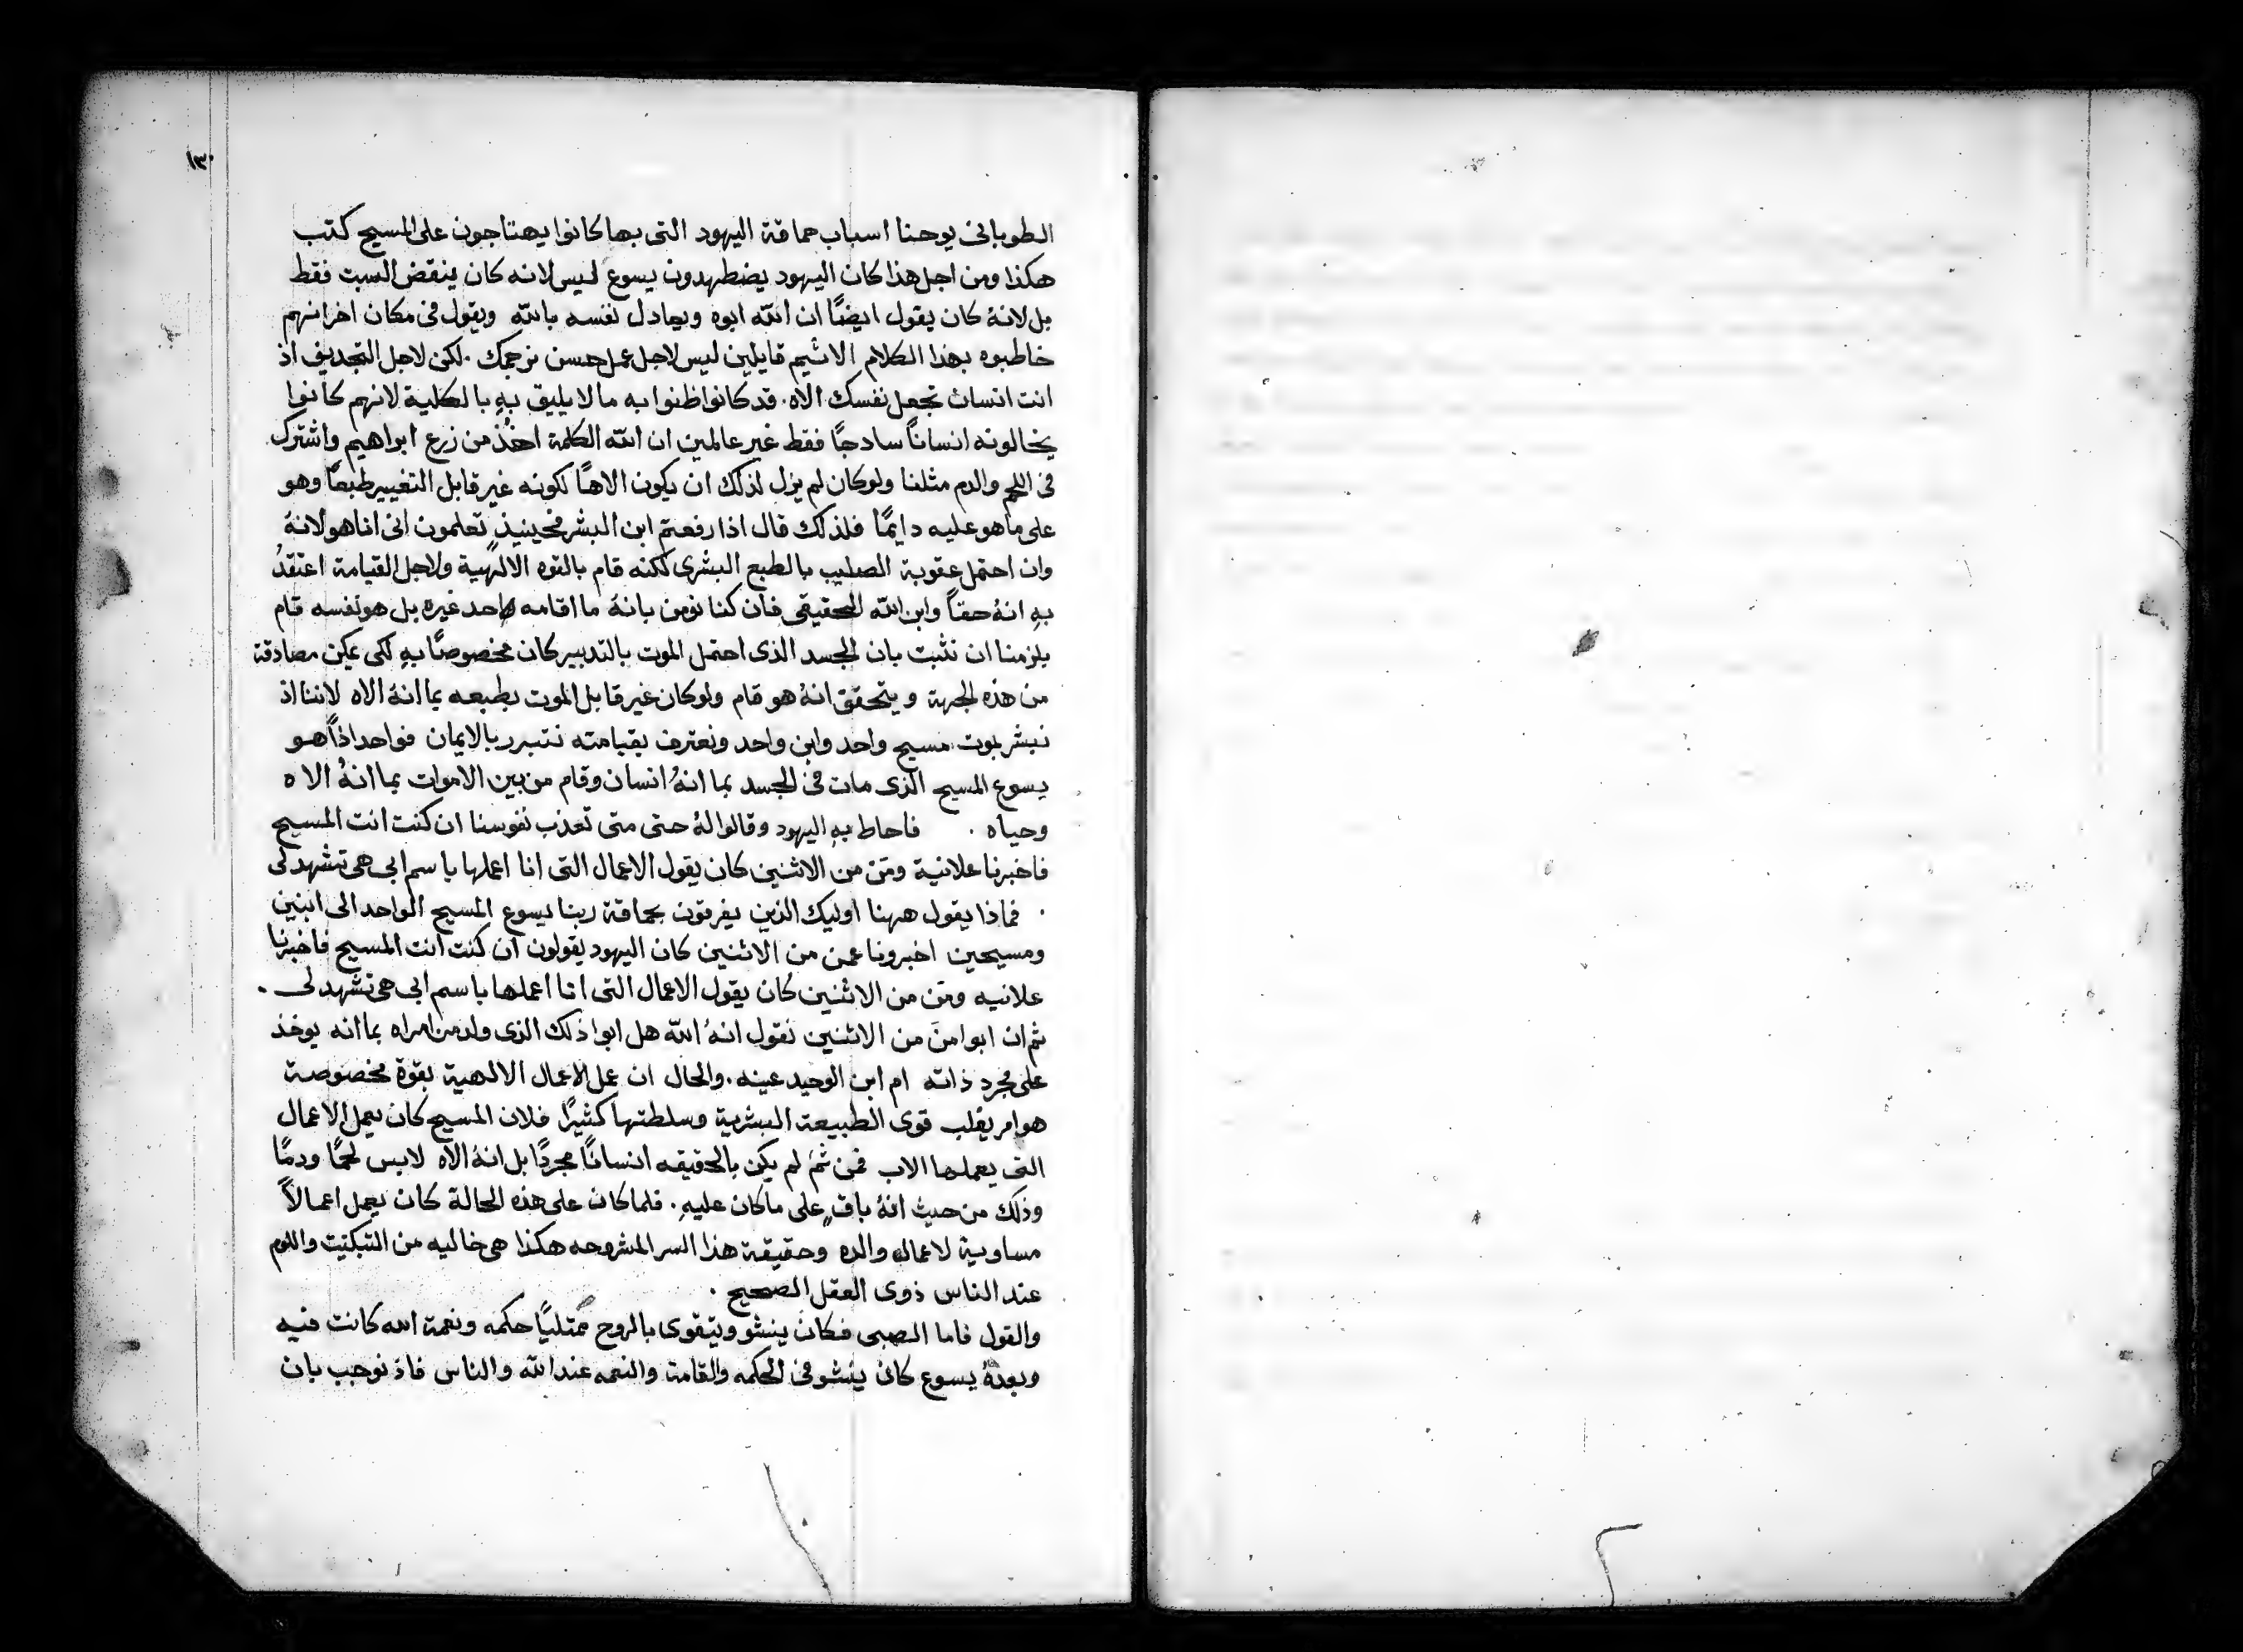 ١٣٠
الطوبانى يوحنا اسباب حماقة اليهود التى بها كانوا يهتاجون على المسيح كتب
هكذا ومن اجل هذا كان اليهود يضطهدون يسوع ليس لانه كان ينقض السبت فقط
بل لانهُ كان يقول ايضًا ان الله ابوه ويعادل نفسه بالله ويقول فى مكان اخر انهم
خاطبوه بهذا الكلام الاثيم قايلين ليس لاجل عمل حسن نرجمك . لكن لاجل التجديف اذ
انت انسان تجعل نفسك الاه . قد كانوا ظنوا به ما لا يليق بهِ بالكلية لانهم كانوا
يخالونه انسانًا سادجًا فقط غير عالمين ان الله الكلمة اخذ من زرع ابراهيم واشترك
فى اللحم والدم مثلنا ولو كان لم يزل لذلك ان يكون الاهًا لكونه غير قابل التغيير طبعًا وهو
على ما هو عليه دايمًا فلذلك قال اذا رفعتم ابن البشر فحينيذٍ تعلمون انى انا هو لانهُ
وان احتمل عقوبة الصليب بالطبع البشرى لكنه قام بالقوه الالهية ولاجل القيامة اعتقدُ
بهِ انهُ حقًا وابن الله الحقيقى فان كنا نومن بانهُ ما اقامه احد غيره بل هو نفسه قام
يلزمنا ان نثبت بان الجسد الذى احتمل الموت بالتدبير كان مخصوصًا بهِ لكى يمكن مصادقة
من هذه الجهة ويتحقق انهُ هو قام ولو كان غير قابل الموت بطبعه بما انهُ الاه لاننا اذ
نبشر بموت مسيح واحد وابن واحد ونعترف بقيامته نتبرر بالايمان فواحد اذًا هو
يسوع المسيح الذى مات فى الجسد بما انهُ انسان وقام من بين الاموات بما انهُ الاه
وحياه . فاحاط بهِ اليهود وقالوا لهُ حتى متى تعذب نفوسنا ان كنت انت المسيح
فاخبرنا علانية ومَن من الاثنين كان يقول الاعمال التى انا اعملها باسم ابى هى تشهد لى
. فماذا يقول ههنا اوليك الذين يفرقون بحماقة ربنا يسوع المسيح الواحد الى ابنين
ومسيحين اخبرونا عمن من الاثنين كان اليهود يقولون ان كنت انت المسيح فاخبرنا
علانيه ومَن من الاثنين كان يقول الاعمال التى انا اعملها باسم ابى هى تشهد لى .
ثم ان ابوا منَ من الاثنين نقول انهُ الله هل ابوا ذلك الذى ولد من امراه بما انه يوخذ
على مجرد ذاته ام ابن الوحيد عينه . والحال ان عمل الاعمال الالهية بقوة مخصوصة
هو امر يغلب قوى الطبيعة البشرية وسلطتها كثيرًا فلان المسيح كان يعمل الاعمال
التى يعملها الاب فمن ثمَ لم يكن بالحقيقه انسانًا مجردًا بل انهُ الاه لابس لحمًا ودمًا
وذلك من حيث انهُ باقٍ على ما كان عليهِ . فلما كان على هذه الحالة كان يعمل اعمالاً
مساوية لاعمال والده وحقيقة هذا السر المشروحه هكذا هى خاليه من التبكيت واللوم
عند الناس ذوى العقل الصحيح .
والقول فاما الصبى فكان ينشو ويتقوى بالروح ممتليًا حكمه ونعمة الله كانت فيه
وبعدهُ يسوع كان ينشو فى الحكمه والقامة والنعمه عند الله والناس فاذ نوجب بان